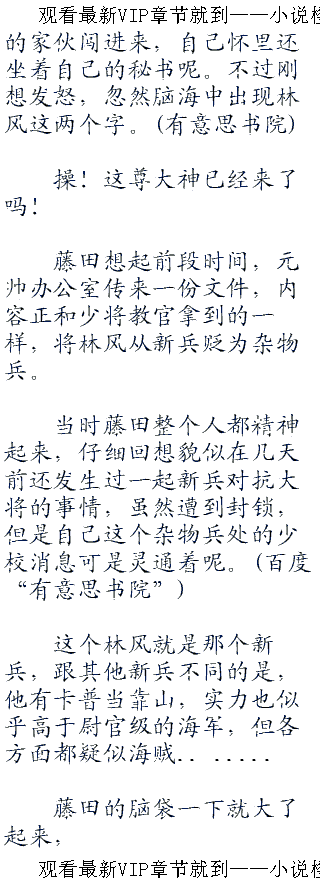 观看最新VIP章节就到——小说检
的家伙闯进来，自己怀里还
坐着自己的秘书呢。不过刚
想发怒，忽然脑海中出现林
风这两个字。(有意思书院)
操！这尊大神已经来了
吗！
藤田想起前段时间，元
帅办公室传来一份文件，内
容正和少将教官拿到的一
样，将林风从新兵贬为杂物
兵。
当时藤田整个人都精神
起来，仔细回想貌似在几天
前还发生过一起新兵对抗大
将的事情，虽然遭到封锁，
但是自己这个杂物兵处的少
校消息可是灵通着呢。(百度
“有意思书院”)
这个林风就是那个新
兵，跟其他新兵不同的是，
他有卡普当靠山，实力也似
乎高于尉官级的海军，但各
方面都疑似海贼．．．．．．．．
藤田的脑袋一下就大了
起来，
观看最新VIP章节就到——小说检